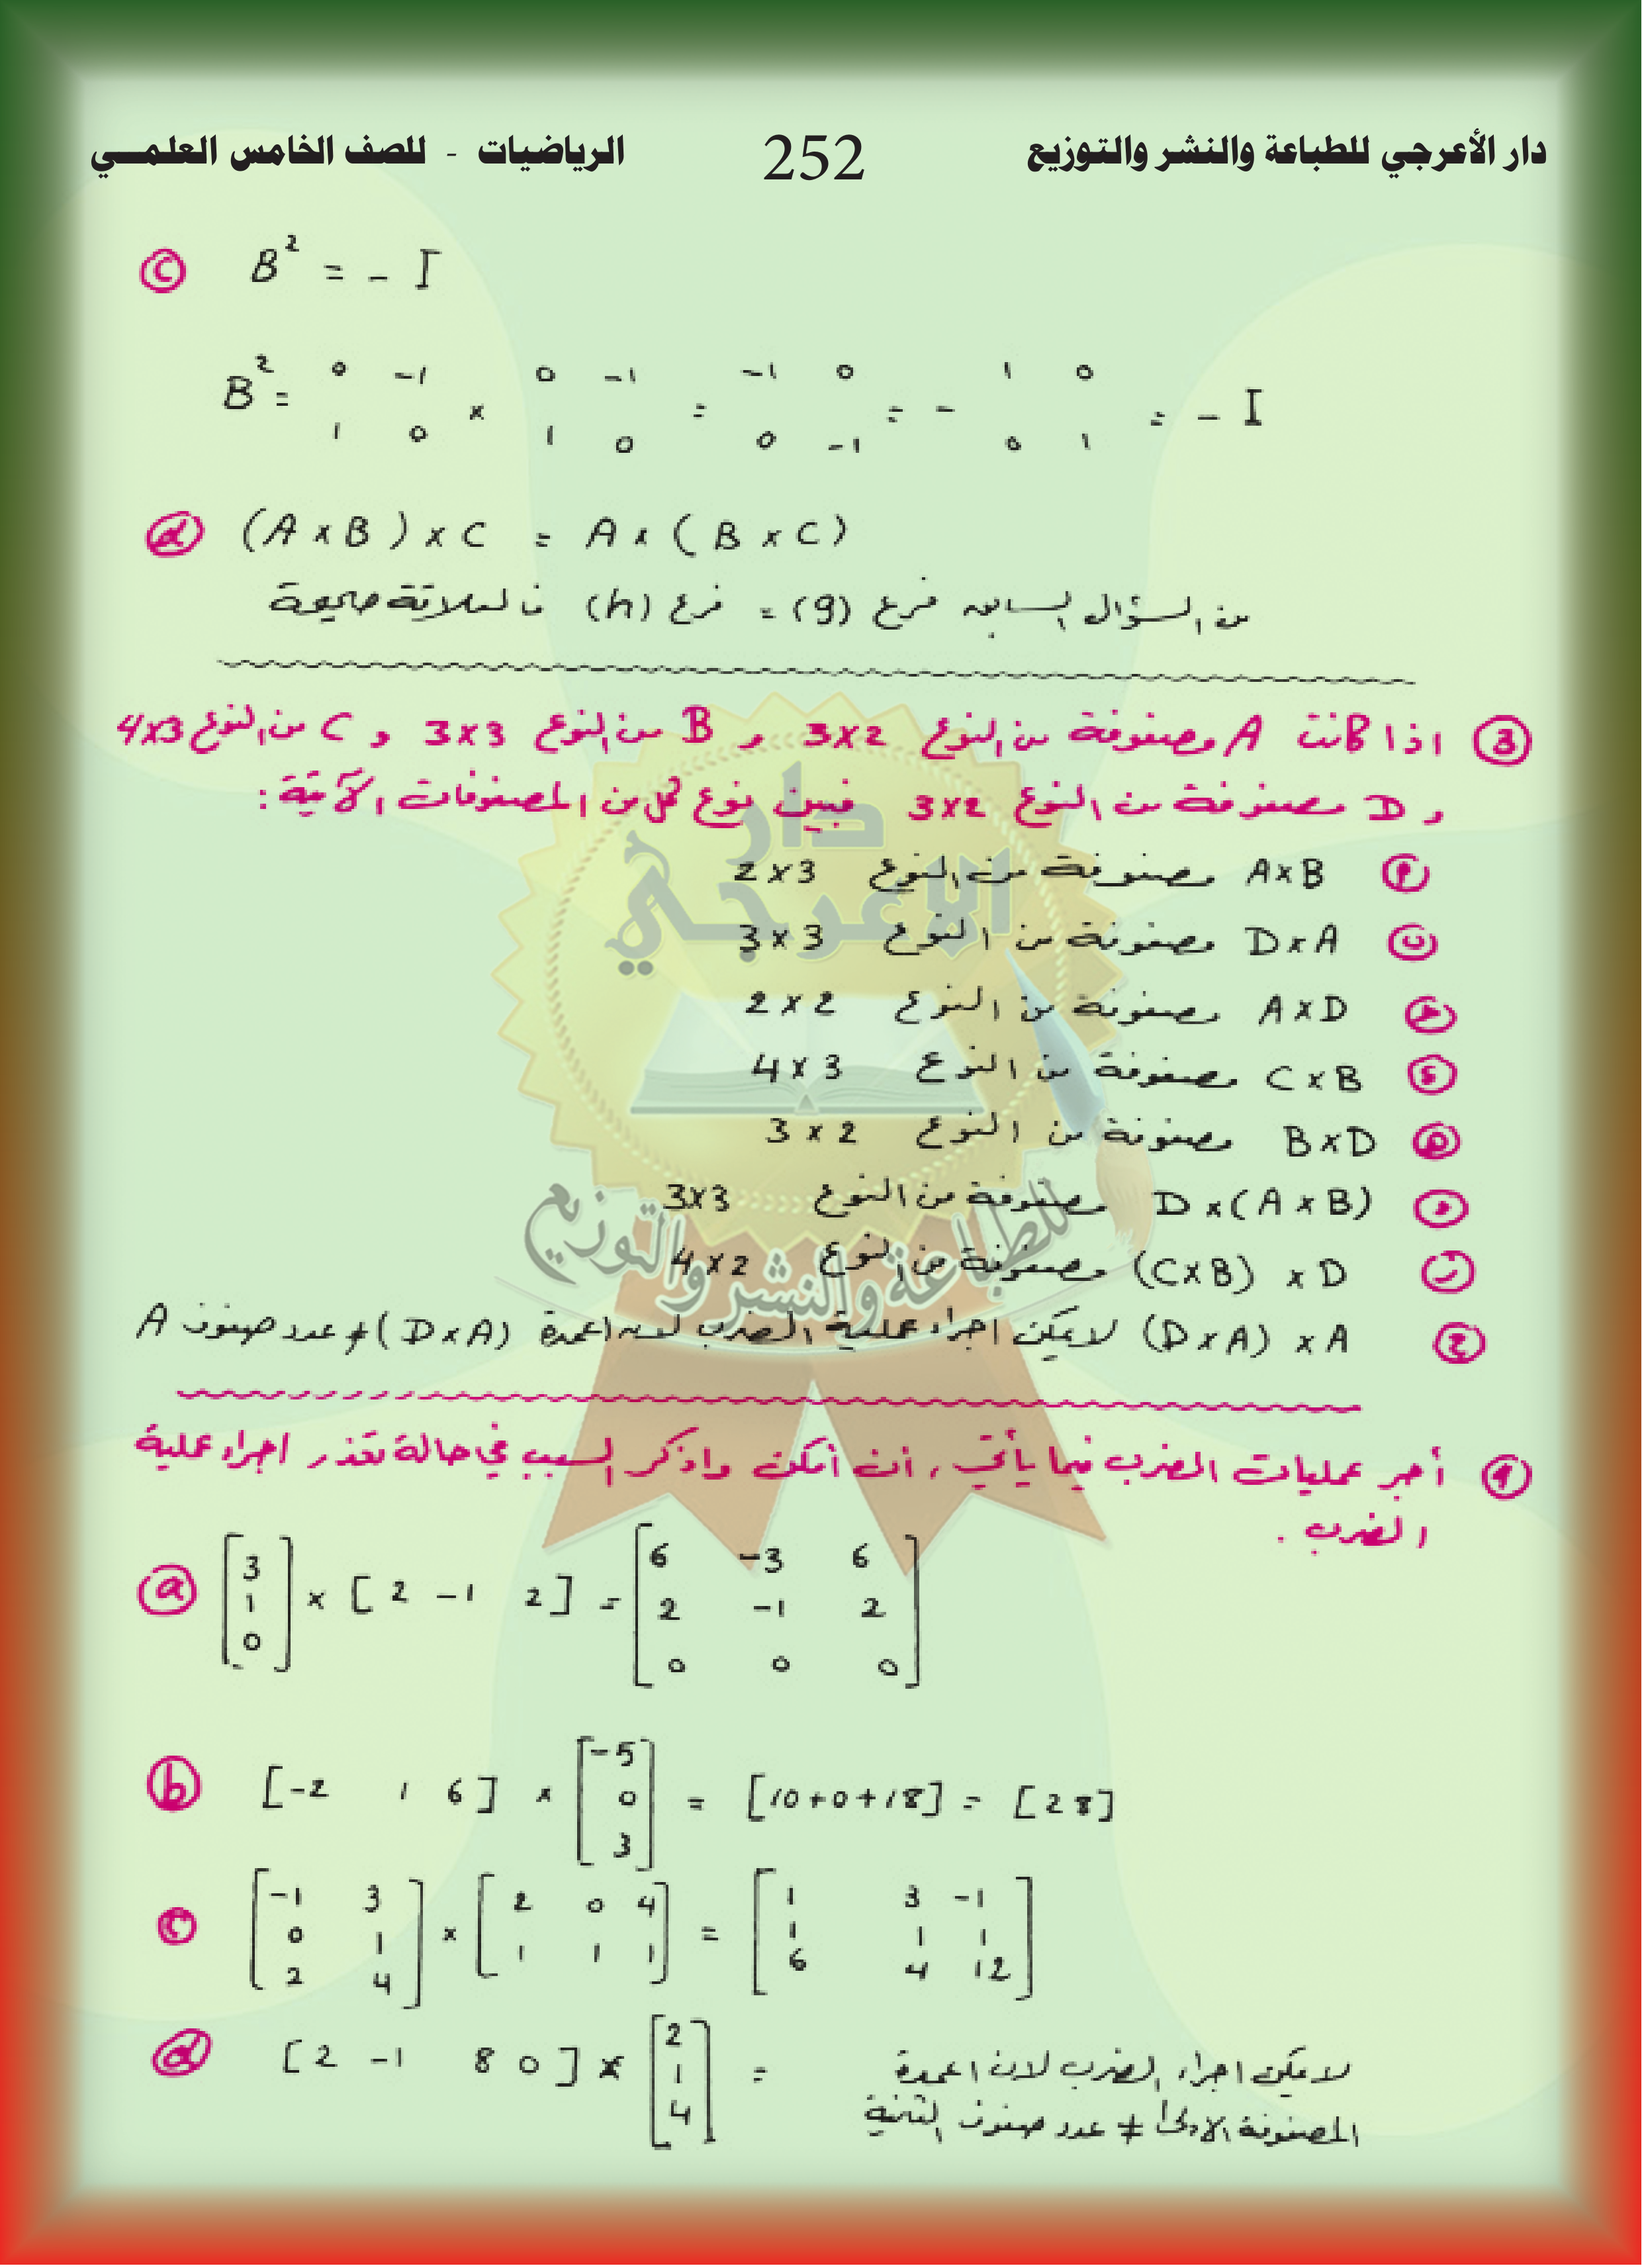 دار الأعرجي للطباعة والنشر والتوزيع 252 الرياضيات - للصف الخامس العلمـــي
ⓒ B² = - I
B² = 0 -1 × 0 -1 = -1 0 = - 1 0 = - I
1 0 1 0 0 -1 0 1
ⓓ (A × B) × C = A × (B × C)
من السؤال السابق فرع (g) = فرع (h) فالعلاقة صحيحة
③ اذا كانت A مصفوفة من النوع 3×2 و B من النوع 3×3 و C من النوع 4×3
و D مصفوفة من النوع 3×2 فبين نوع كل من المصفوفات الآتية:
أ A×B مصفوفة من النوع 2×3
ب D×A مصفوفة من النوع 3×3
جـ A×D مصفوفة من النوع 2×2
د C×B مصفوفة من النوع 4×3
هـ B×D مصفوفة من النوع 3×2
و D×(A×B) مصفوفة من النوع 3×3
ز (C×B) ×D مصفوفة من النوع 4×2
ح (D×A) ×A لا يمكن اجراء عملية الضرب لان اعمدة (D×A) ≠ عدد صفوف A
دار
الاعرجي
للطباعة والنشر والتوزيع
أجر عمليات الضرب فيما يأتي، أن أمكن واذكر السبب في حالة تعذر اجراء عملية
الضرب.
ⓐ [3 1 0] × [2 -1 2] = [6 -3 6
2 -1 2
0 0 0]
ⓑ [-2 1 6] × [-5 0 3] = [10+0+18] = [28]
ⓒ [-1 3 × [2 0 4 = [1 3 -1
0 1 1 1 1] 1 1 1
2 4] 6 4 12]
ⓓ [2 -1 8 0] × [2 1 4] = لا يمكن اجراء الضرب لان اعمدة
المصفوفة الاولى ≠ عدد صفوف الثانية